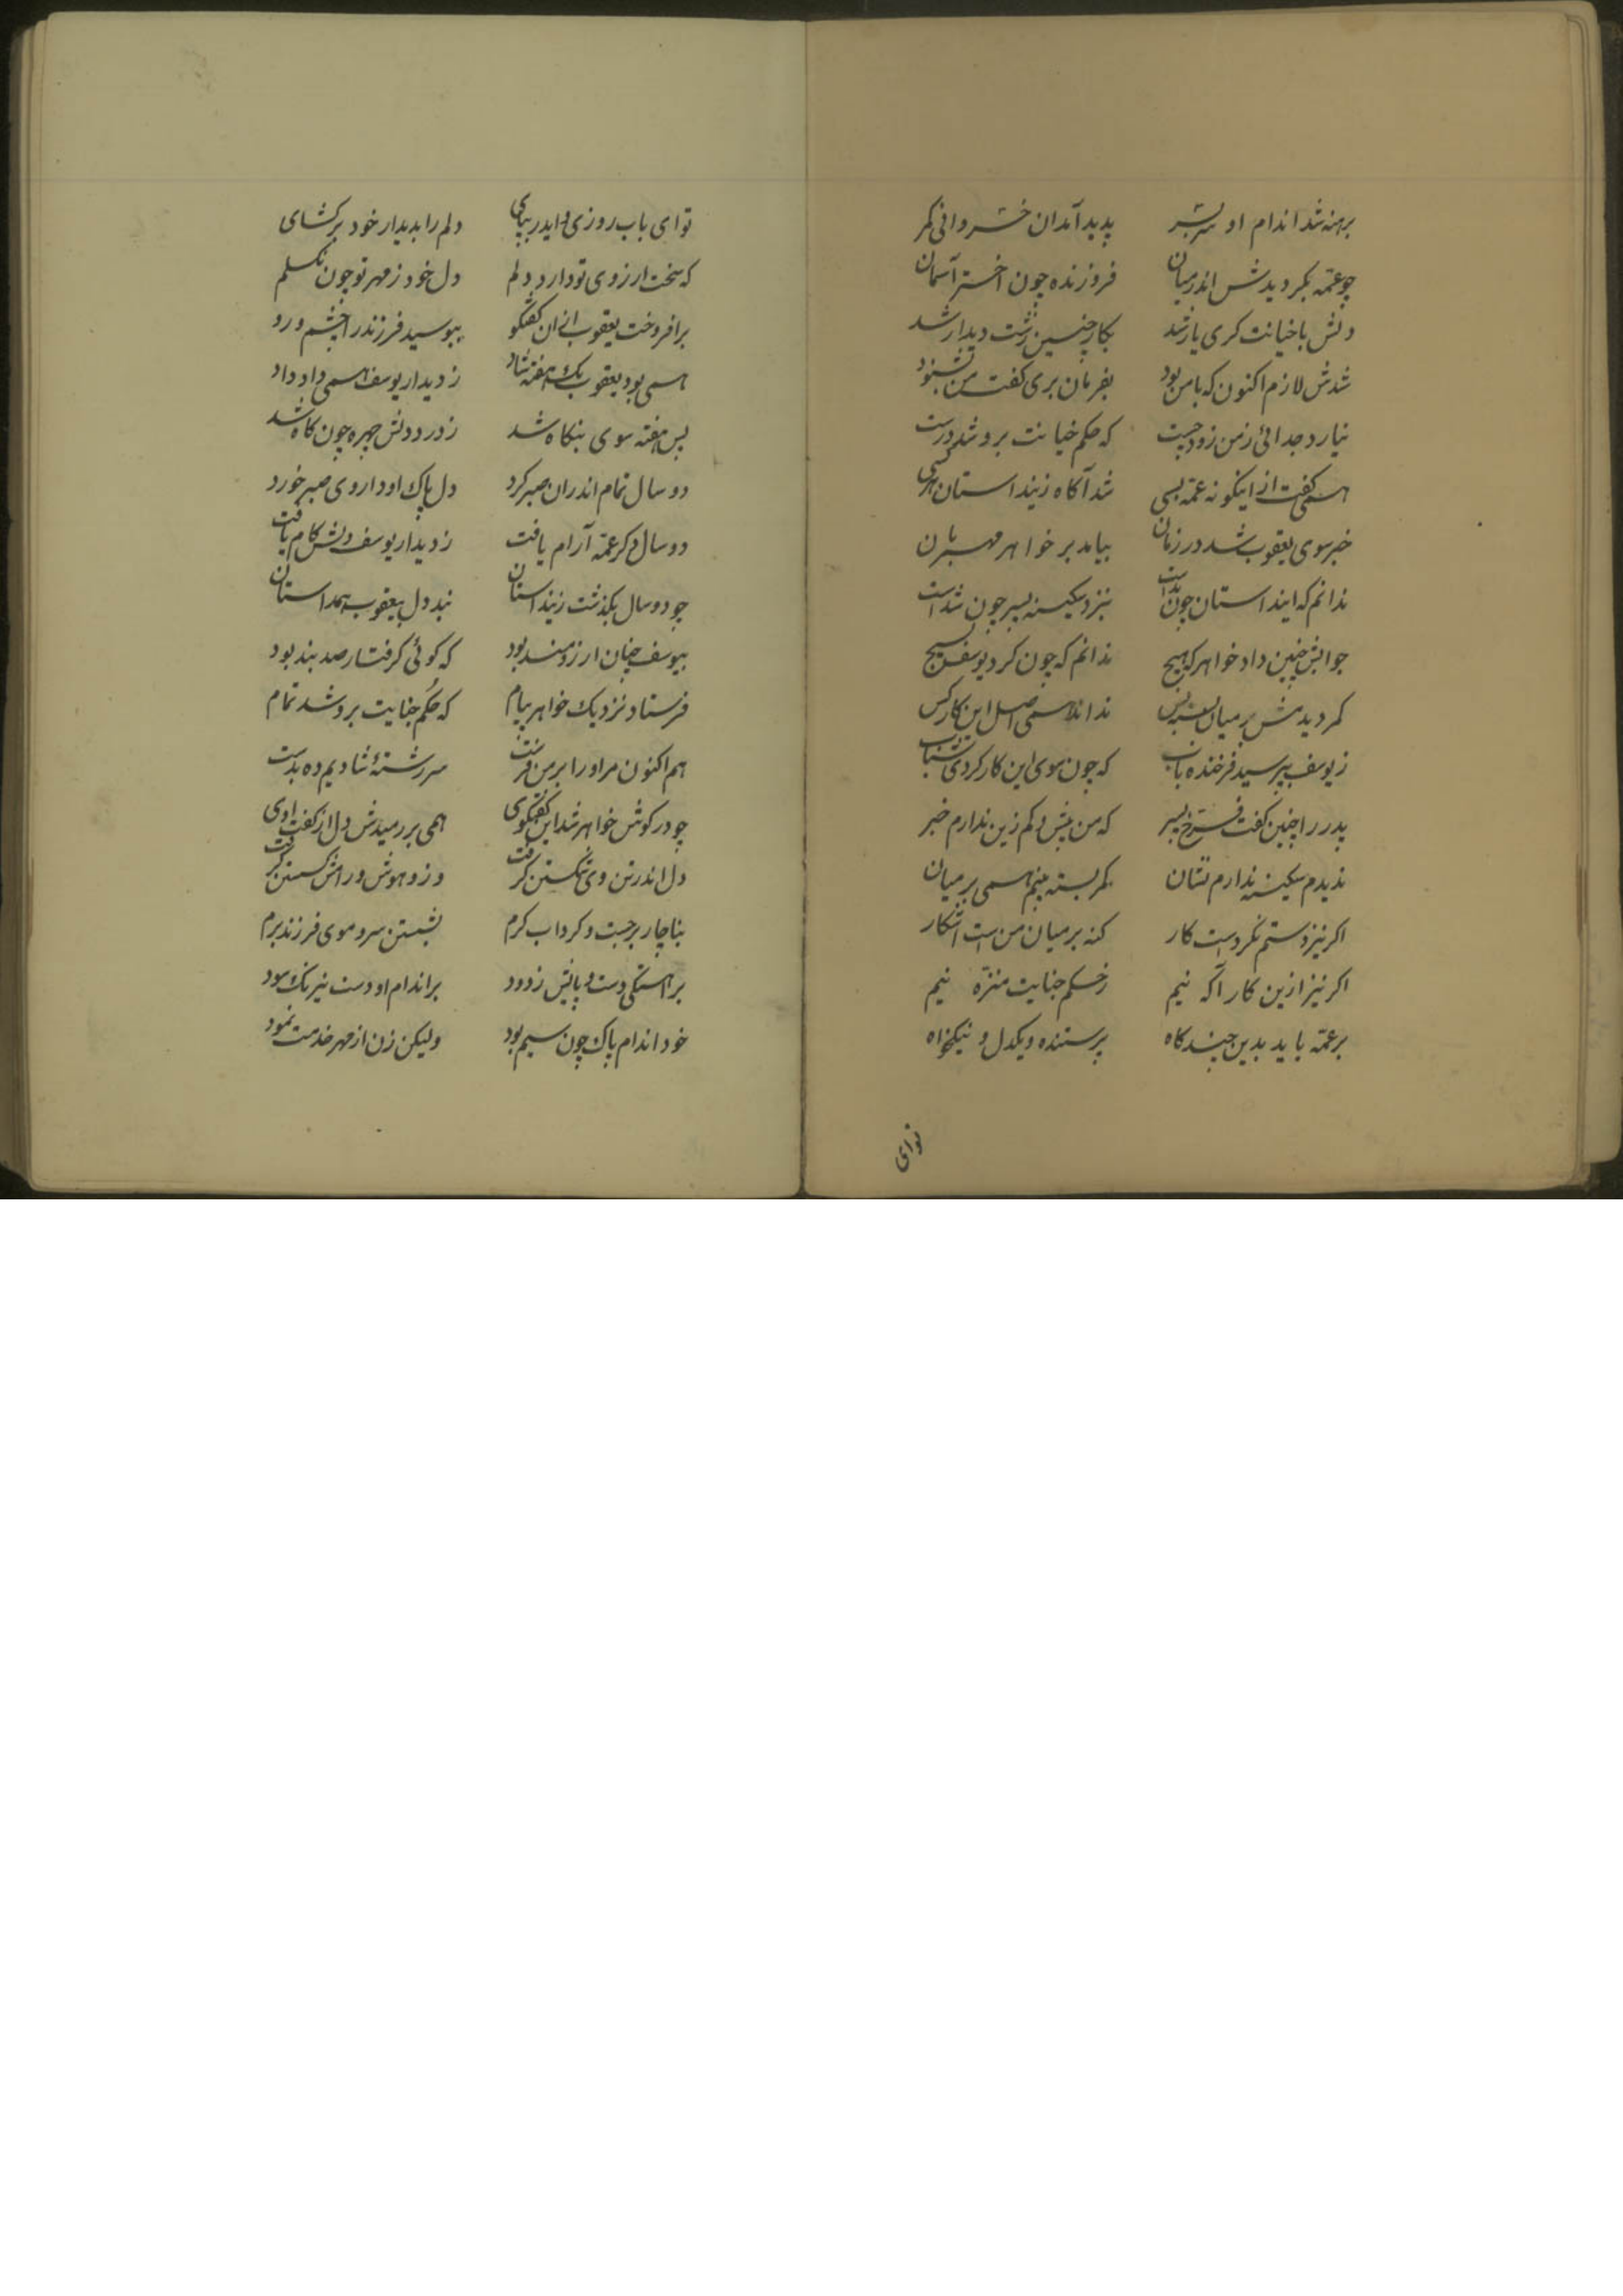 برهنه شد اندام او سربسر پدید آمد آن خسروانی کمر
چو عمّه کمر دیدش اندر میان فروزنده چون اختر آسمان
دلش با خیانت کری یار شد بکار چنین زشت دیدار شد
شدش لازم اکنون که با من بود بفرمان بری کفت من بشنود
نیارد جدائی ز من زود جست که حکم خیانت برو شد درست
همی کفت از اینکونه عمّه بسی شد آکاه زینداستان هرکسی
خبر سوی یعقوب شد در زمان بیامد بر خواهر مهربان
ندانم که اینداستان چون بدست بنزد سکینه پسر چون شدست
جوابش چنین داد خواهر که هیچ ندانم که چون کرد یوسف بسیج
کمر دیدمش بر میان بسته بس نداند همی اصل این کار کس
ز یوسف بپرسید فرخنده باب که چون سوی این کار کردی شتاب
پدر را چنین کفت فرّخ پسر که من بیش و کم زین ندارم خبر
ندیدم سکینه ندارم نشان کمر بسته بینم همی بر میان
اکر نیز دستم نکردست کار کنه بر میان منست اشکار
اکر نیز ازین کار آکه نیم ز حکم جنایت منزّه نیم
بر عمّه باید بدین چند کاه پرستنده و یکدل و نیکخواه
توای
تو ای باب روزی دو ایدر بپای دلم را بدیدار خود برکشای
که سخت ارزوی تو دارد دلم دل خود ز مهر تو چون بکسلم
برافروخت یعقوب از ان کفتکو ببوسید فرزند را چشم و رو
همی بود یعقوب یک هفته شاد ز دیدار یوسف همی داد داد
پس هفته سوی بنکاه شد ز درد دلش چهره چون کاه شد
دو سال تمام اندران صبر کرد دل پاک او داروی صبر خورد
دو سال دکر عمّه آرام یافت ز دیدار یوسف دلش کام یافت
چو دو سال بکذشت زینداستان نبد دل بیعقوب همداستان
بیوسف چنان ارزومند بود که کوئی کرفتار صد بند بود
فرستاد نزدیک خواهر پیام که حکم جنایت برو شد تمام
هم اکنون مر او را بر من فرست سر رشتهٔ شادیم ده بدست
چو در کوش خواهر شد این کفتکوی همی بررمیدش دل از کفت اوی
دل اندر تن وی شکستن کرفت وزو هوش و رامش کسستن کرفت
بناچار برجست و کرد اب کرم بشستن سر و موی فرزند نرم
براهستکی دست و پایش زدود بر اندام او دست نیرنک سود
خود اندام پاک چون سیم بود ولیکن زن از مهر خدمت نمود